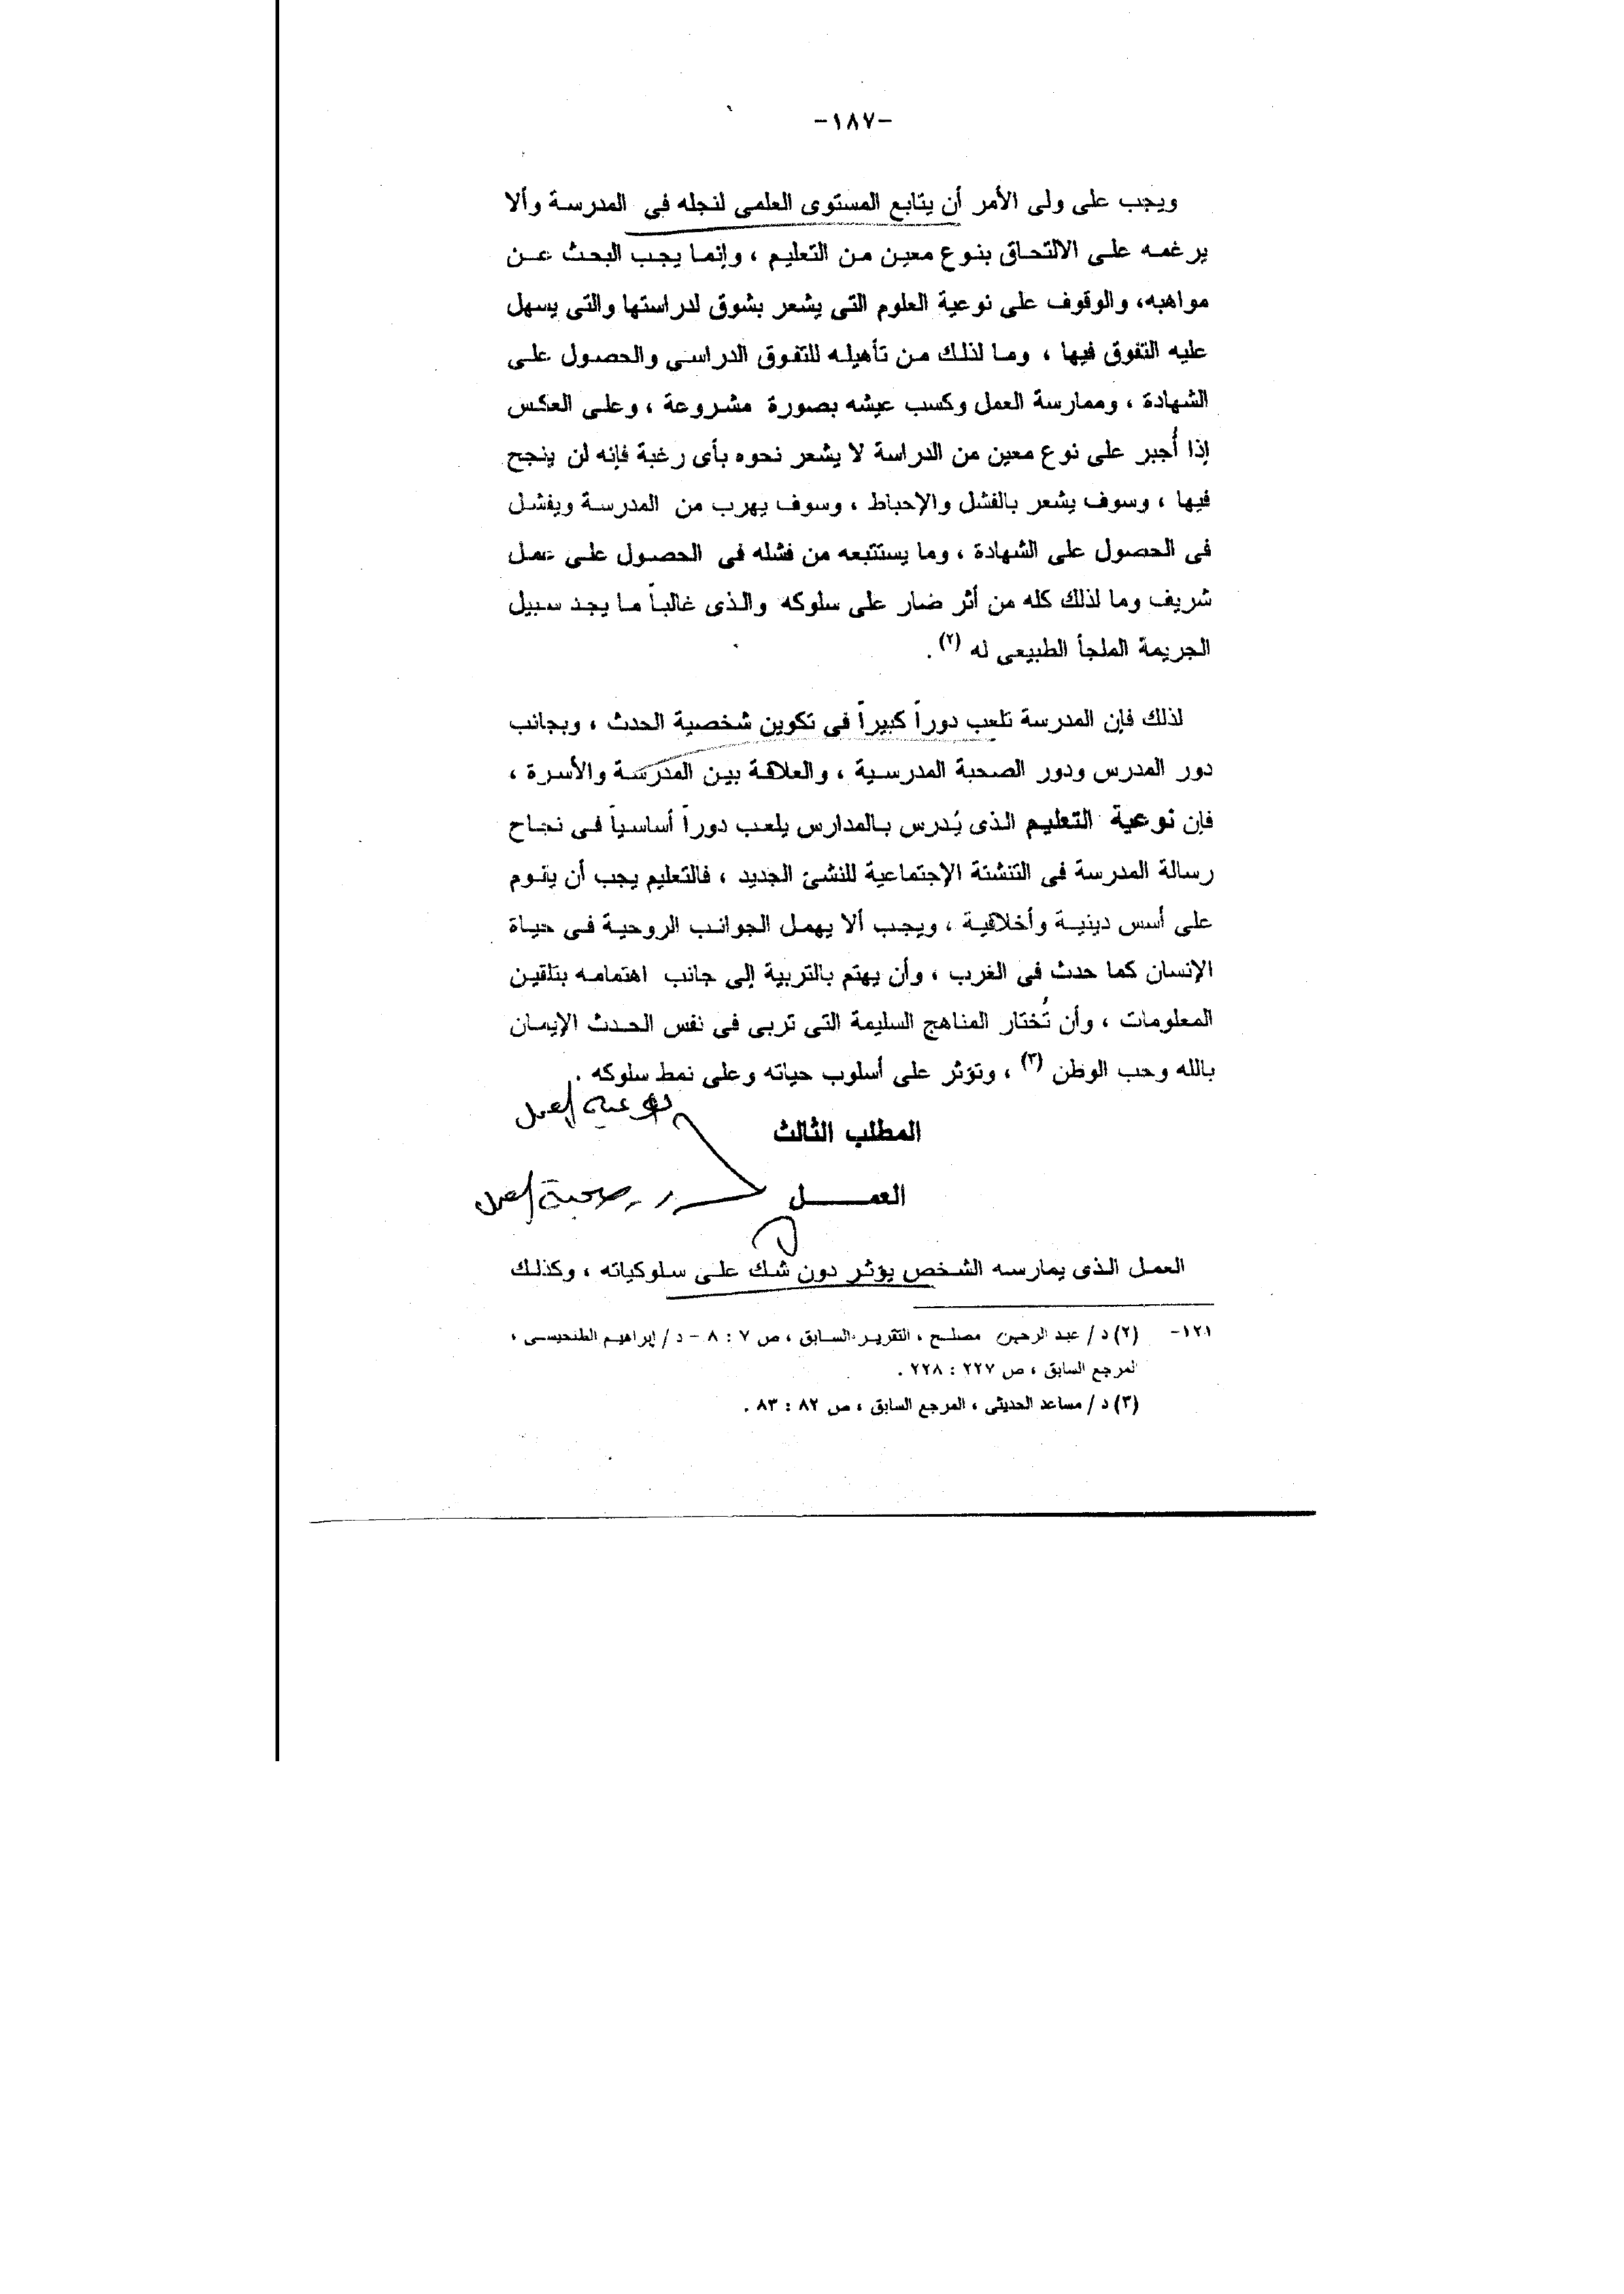 -١٨٧-
ويجب على ولى الأمر أن يتابع المستوى العلمى لنجله فى المدرسة وألا
يرغمه على الالتحاق بنوع معين من التعليم ، وإنما يجب البحث عن
مواهبه، والوقوف على نوعية العلوم التى يشعر بشوق لدراستها والتى يسهل
عليه التفوق فيها ، وما لذلك من تأهيله للتفوق الدراسى والحصول على
الشهادة ، وممارسة العمل وكسب عيشه بصورة مشروعة ، وعلى العكس
إذا أُجبر على نوع معين من الدراسة لا يشعر نحوه بأى رغبة فإنه لن ينجح
فيها ، وسوف يشعر بالفشل والإحباط ، وسوف يهرب من المدرسة ويفشل
فى الحصول على الشهادة ، وما يستتبعه من فشله فى الحصول على عمل
شريف وما لذلك كله من أثر ضار على سلوكه والذى غالباً ما يجد سبيل
الجريمة الملجأ الطبيعى له (٢) .
لذلك فإن المدرسة تلعب دوراً كبيراً فى تكوين شخصية الحدث ، وبجانب
دور المدرس ودور الصحبة المدرسية ، والعلاقة بين المدرسة والأسرة ،
فإن نوعية التعليم الذى يُدرس بالمدارس يلعب دوراً أساسياً فى نجاح
رسالة المدرسة فى التنشئة الإجتماعية للنشئ الجديد ، فالتعليم يجب أن يقوم
على أسس دينية وأخلاقية ، ويجب ألا يهمل الجوانب الروحية فى حياة
الإنسان كما حدث فى الغرب ، وأن يهتم بالتربية إلى جانب اهتمامه بتلقين
المعلومات ، وأن تُختار المناهج السليمة التى تربى فى نفس الحدث الإيمان
بالله وحب الوطن (٣) ، وتؤثر على أسلوب حياته وعلى نمط سلوكه .
نوعية العمل
المطلب الثالث
العمـــــل
صحبة العمل
العمل الذى يمارسه الشخص يؤثر دون شك على سلوكياته ، وكذلك
١٢١- (٢) د/ عبد الرحمن مصلح ، التقرير السابق ، ص ٧ : ٨ - د/ إبراهيم ،
المرجع السابق ، ص ٢٢٧ : ٢٢٨ .
(٣) د/ مساعد الحديثى ، المرجع السابق ، ص ٨٢ : ٨٣ .